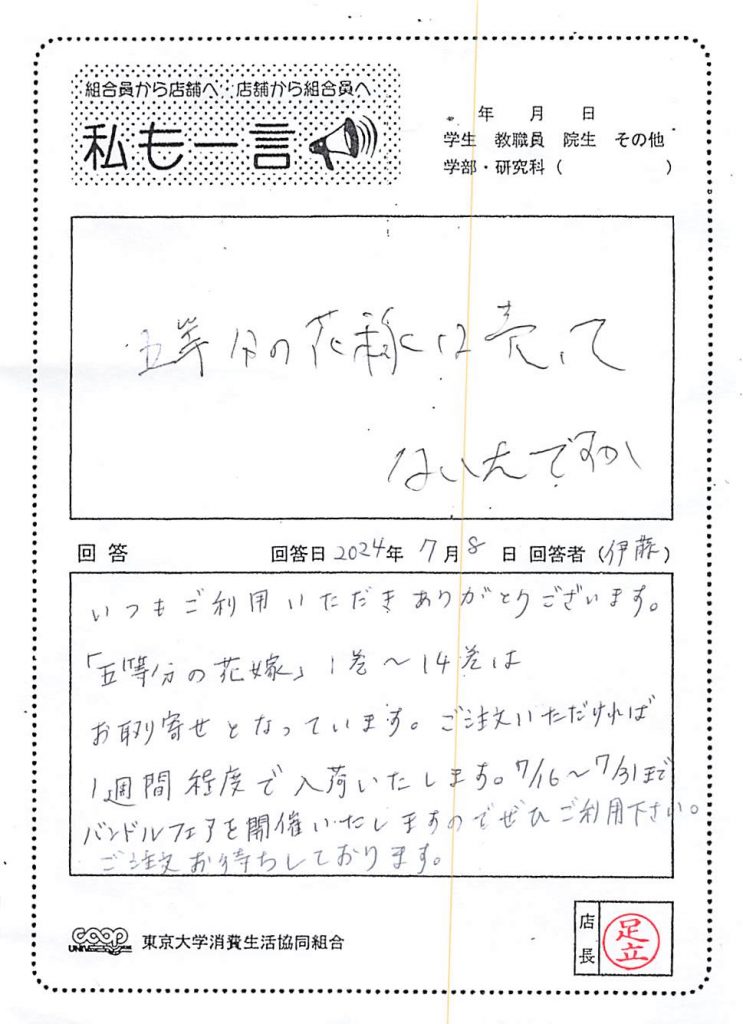 組合員から店舗へ 店舗から組合員へ
私も一言
年 月 日
学生 教職員 院生 その他
学部・研究科 ( )
五等分の花嫁は売って
ないんですか
回答 回答日 2024年 7月 8日 回答者 (伊藤)
いつもご利用いただきありがとうございます。
「五等分の花嫁」1巻〜14巻は
お取り寄せとなっています。ご注文いただければ
1週間程度で入荷いたします。7/16〜7/31まで
バンドルフェアを開催いたしますのでぜひご利用下さい。
ご注文お待ちしております。
coop
UNIV.
東京大学消費生活協同組合
店長
足立